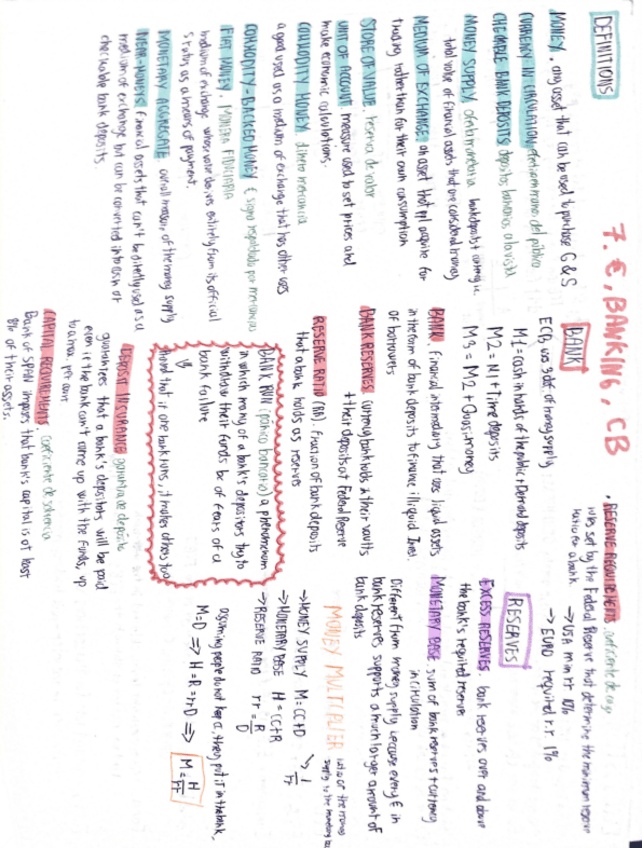 7. €, BANKING, CB
DEFINITIONS
MONEY. any asset that can be used to purchase G & S
CURRENCY IN CIRCULATION efectivo en manos del público
CHECKABLE BANK DEPOSITS depósitos bancarios a la vista
MONEY SUPPLY oferta monetaria
total value of financial assets that are considered money
MEDIUM OF EXCHANGE an asset that ppl acquire for
trading rather than for their own consumption
STORE OF VALUE. reserva de valor
UNIT OF ACCOUNT. measure used to set prices and
make economic calculations.
COMMODITY MONEY. dinero mercancía
a good used as a medium of exchange that has other uses
COMMODITY-BACKED MONEY € signo respaldado por mercancías
FIAT MONEY. MONEDA FIDUCIARIA
medium of exchange whose value derives entirely from its official
status as a means of payment.
MONETARY AGGREGATE. overall measure of the money supply
NEAR-MONEYS. financial assets that can't be directly used as a
medium of exchange but can be converted into cash or
checkable bank deposits.
BANK
ECB use 3 def. of money supply
M1 = cash in hands of the public + Demand deposits
M2 = M1 + Time deposits
M3 = M2 + Quasi-money
BANK. financial intermediary that uses liquid assets
in the form of bank deposits to finance illiquid Inves.
of borrowers
BANK RESERVES currency bank holds in their vaults
+ their deposits at Federal Reserve
RESERVE RATIO (RR). fraction of bank deposits
that a bank holds as reserves
BANK RUN (pánico bancario) a phenomenon
in which many of a bank's depositors try to
withdraw their funds bc of fears of a
bank failure
that if one bank runs, it makes others too
DEPOSIT INSURANCE garantía de depósito
guarantees that a bank's depositors will be paid
even if the bank can't come up with the funds, up
to a max. per acc
CAPITAL REQUIREMENTS coeficiente de solvencia
Bank of SPAIN imposes that bank's capital is at least
8% of their assets.
• RESERVE REQUIREMENTS coeficiente de caja
rules set by the Federal Reserve that determine the minimum reserve
ratio for a bank → USA min rr 10%
→ EURO required r.r. 1%
RESERVES
EXCESS RESERVES. bank reserves over and above
the bank's required reserve
MONETARY BASE. sum of bank reserves + currency
in circulation
Different from money supply because every € in
bank reserves supports a much larger amount of
bank deposits
MONEY MULTIPLIER ratio of the money
supply to the monetary base
→ MONEY SUPPLY M = CC + D ↘ 1/rr
→ MONETARY BASE H = CC + R
→ RESERVE RATIO rr = R/D
assuming people do not keep €, they put it in the bank,
M = D ⇒ H = R = rrD ⇒ M = H/rr